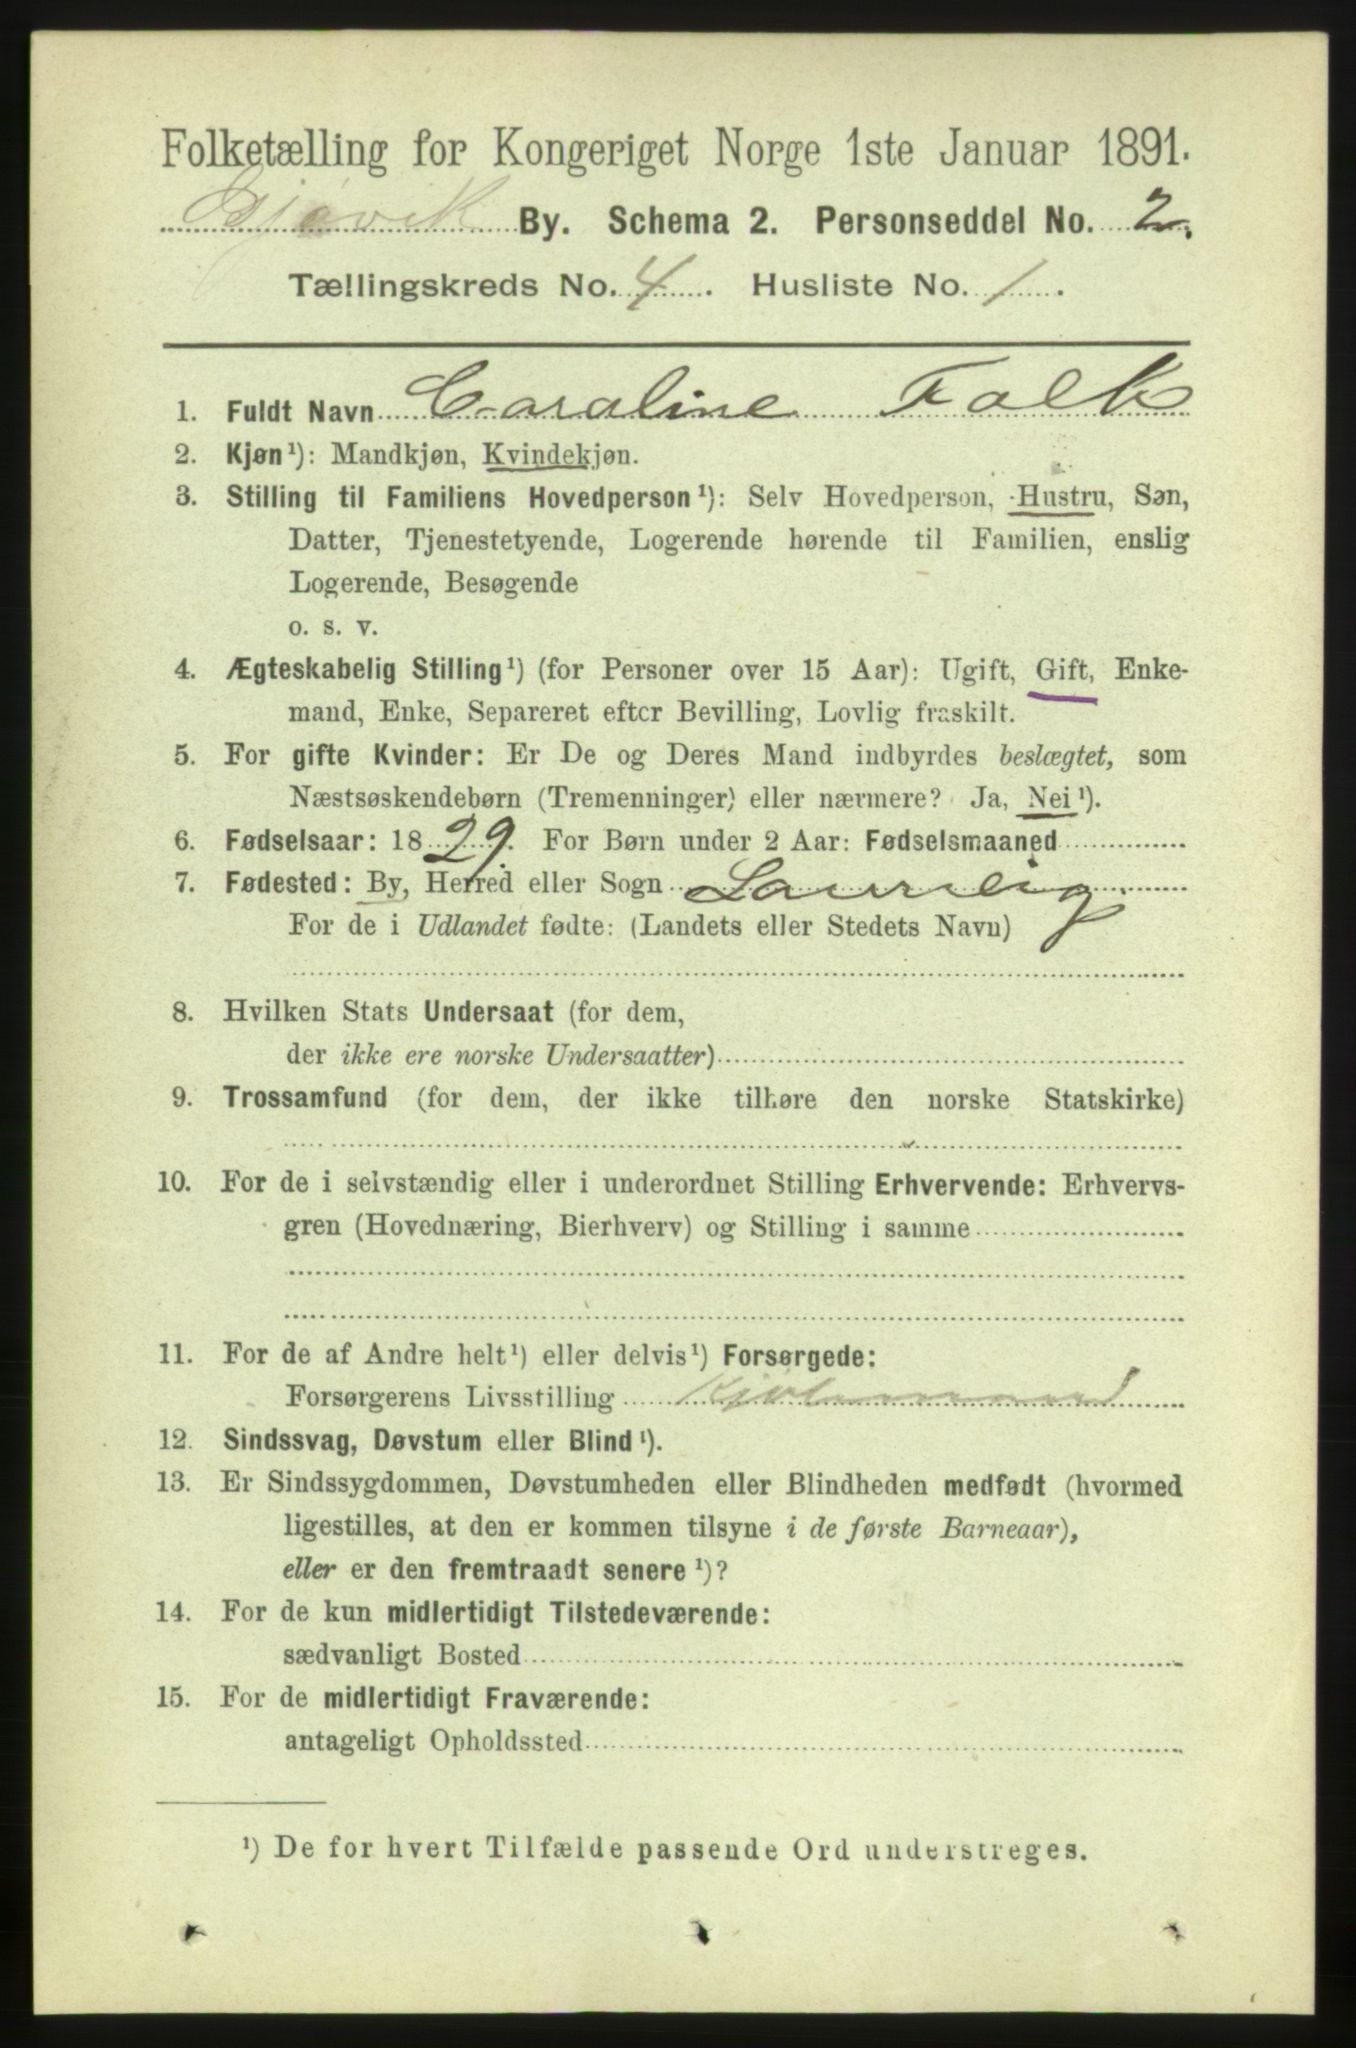 Folketælling for Kongeriget Norge 1ste Januar 1891.
Gjøvik By. Schema 2. Personseddel No. 2.
Tællingskreds No. 4. Husliste No. 1.
1. Fuldt Navn Caroline Falk
2. Kjøn¹): Mandkjøn, Kvindekjøn.
3. Stilling til Familiens Hovedperson¹): Selv Hovedperson, Hustru, Søn,
Datter, Tjenestetyende, Logerende hørende til Familien, enslig
Logerende, Besøgende
o. s. v.
4. Ægteskabelig Stilling¹) (for Personer over 15 Aar): Ugift, Gift, Enke-
mand, Enke, Separeret efter Bevilling, Lovlig fraskilt.
5. For gifte Kvinder: Er De og Deres Mand indbyrdes beslægtet, som
Næstsøskendebørn (Tremenninger) eller nærmere? Ja, Nei¹).
6. Fødselsaar: 1829. For Børn under 2 Aar: Fødselsmaaned
7. Fødested: By, Herred eller Sogn Laurvig
For de i Udlandet fødte: (Landets eller Stedets Navn)
8. Hvilken Stats Undersaat (for dem,
der ikke ere norske Undersaatter)
9. Trossamfund (for dem, der ikke tilhøre den norske Statskirke)
10. For de i selvstændig eller i underordnet Stilling Erhvervende: Erhvervs-
gren (Hovednæring, Bierhverv) og Stilling i samme
11. For de af Andre helt¹) eller delvis¹) Forsørgede:
Forsørgerens Livsstilling Kjøbmmand
12. Sindssvag, Døvstum eller Blind¹).
13. Er Sindssygdommen, Døvstumheden eller Blindheden medfødt (hvormed
ligestilles, at den er kommen tilsyne i de første Barneaar),
eller er den fremtraadt senere¹)?
14. For de kun midlertidigt Tilstedeværende:
sædvanligt Bosted
15. For de midlertidigt Fraværende:
antageligt Opholdssted
¹) De for hvert Tilfælde passende Ord understreges.